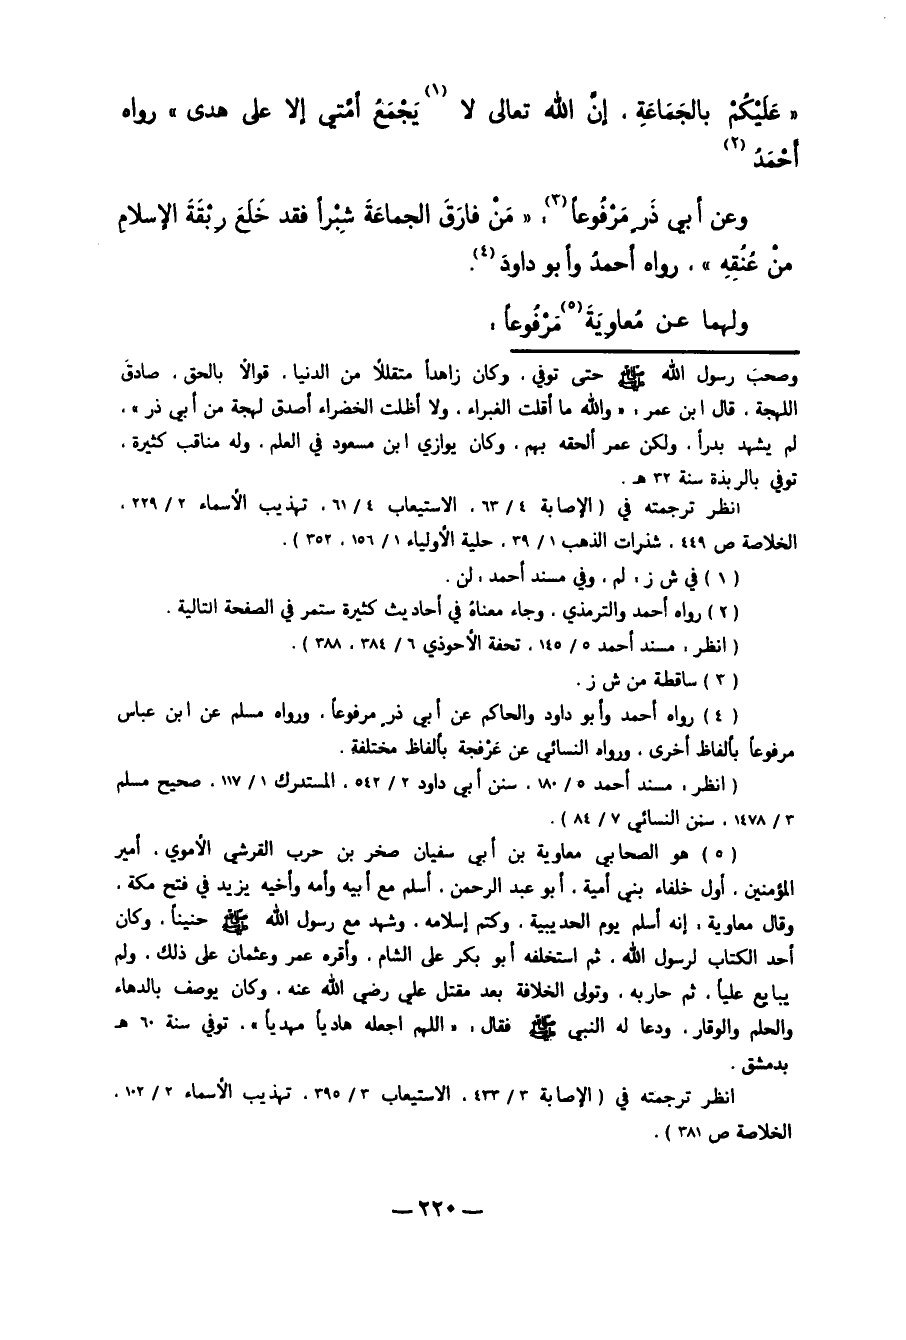 « عَلَيْكُمْ بالجَمَاعَةِ ، إنَّ الله تعالى لا (١) يَجْمَعُ أمْتي إلا على هدى » رواه
أحْمَدُ (٢)
وعن أبي ذَر مَرْفُوعاً (٣) : « مَنْ فارَقَ الجماعَةَ شِبْراً فقد خَلَعَ رِبْقَةَ الإسلام
منْ عُنُقِهِ » ، رواه أحمدُ وأبو داودَ (٤) .
ولهما عن مُعاوِيَةَ (٥) مَرْفُوعاً :
وصحبَ رسول الله ﷺ حتى توفي ، وكان زاهداً متقللاً من الدنيا ، قوالاً بالحق ، صادقَ
اللهجة ، قال ابن عمر : « والله ما أقلت الغبراء ، ولا أظلت الخضراء أصدق لهجة من أبي ذر » ،
لم يشهد بدراً ، ولكن عمر ألحقه بهم ، وكان يوازي ابن مسعود في العلم ، وله مناقب كثيرة ،
توفي بالربذة سنة ٣٢ هـ .
انظر ترجمته في ( الإصابة ٤ / ٦٣ ، الاستيعاب ٤ / ٦١ ، تهذيب الأسماء ٢ / ٢٢٩ ،
الخلاصة ص ٤٤٩ ، شذرات الذهب ١ / ٣٩ ، حلية الأولياء ١ / ١٥٦ ، ٣٥٢ ) .
( ١ ) في ش ز : لم ، وفي مسند أحمد : لن .
( ٢ ) رواه أحمد والترمذي ، وجاء معناهُ في أحاديث كثيرة ستمر في الصفحة التالية .
( انظر : مسند أحمد ٥ / ١٤٥ ، تحفة الأحوذي ٦ / ٣٨٤ ، ٣٨٨ ) .
( ٣ ) ساقطة من ش ز .
( ٤ ) رواه أحمد وأبو داود والحاكم عن أبي ذر مرفوعاً ، ورواه مسلم عن ابن عباس
مرفوعاً بألفاظ أخرى ، ورواه النسائي عن عَرْفجة بألفاظ مختلفة .
( انظر : مسند أحمد ٥ / ١٨٠ ، سنن أبي داود ٢ / ٥٤٢ ، المستدرك ١ / ١١٧ ، صحيح مسلم
٣ / ١٤٧٨ ، سنن النسائي ٧ / ٨٤ ) .
( ٥ ) هو الصحابي معاوية بن أبي سفيان صخر بن حرب القرشي الأموي ، أمير
المؤمنين ، أول خلفاء بني أمية ، أبو عبد الرحمن ، أسلم مع أبيه وأمه وأخيه يزيد في فتح مكة ،
وقال معاوية : إنه أسلم يوم الحديبية ، وكتم إسلامه ، وشهد مع رسول الله ﷺ حنيناً ، وكان
أحد الكتاب لرسول الله ، ثم استخلفه أبو بكر على الشام ، وأقره عمر وعثمان على ذلك ، ولم
يبايع علياً ، ثم حاربه ، وتولى الخلافة بعد مقتل علي رضي الله عنه ، وكان يوصف بالدهاء
والحلم والوقار ، ودعا له النبي ﷺ فقال : « اللهم اجعله هادياً مهدياً » ، توفي سنة ٦٠ هـ
بدمشق .
انظر ترجمته في ( الإصابة ٣ / ٤٣٣ ، الاستيعاب ٣ / ٣٩٥ ، تهذيب الأسماء ٢ / ١٠٢ ،
الخلاصة ص ٣٨١ ) .
— ٢٢٠ —